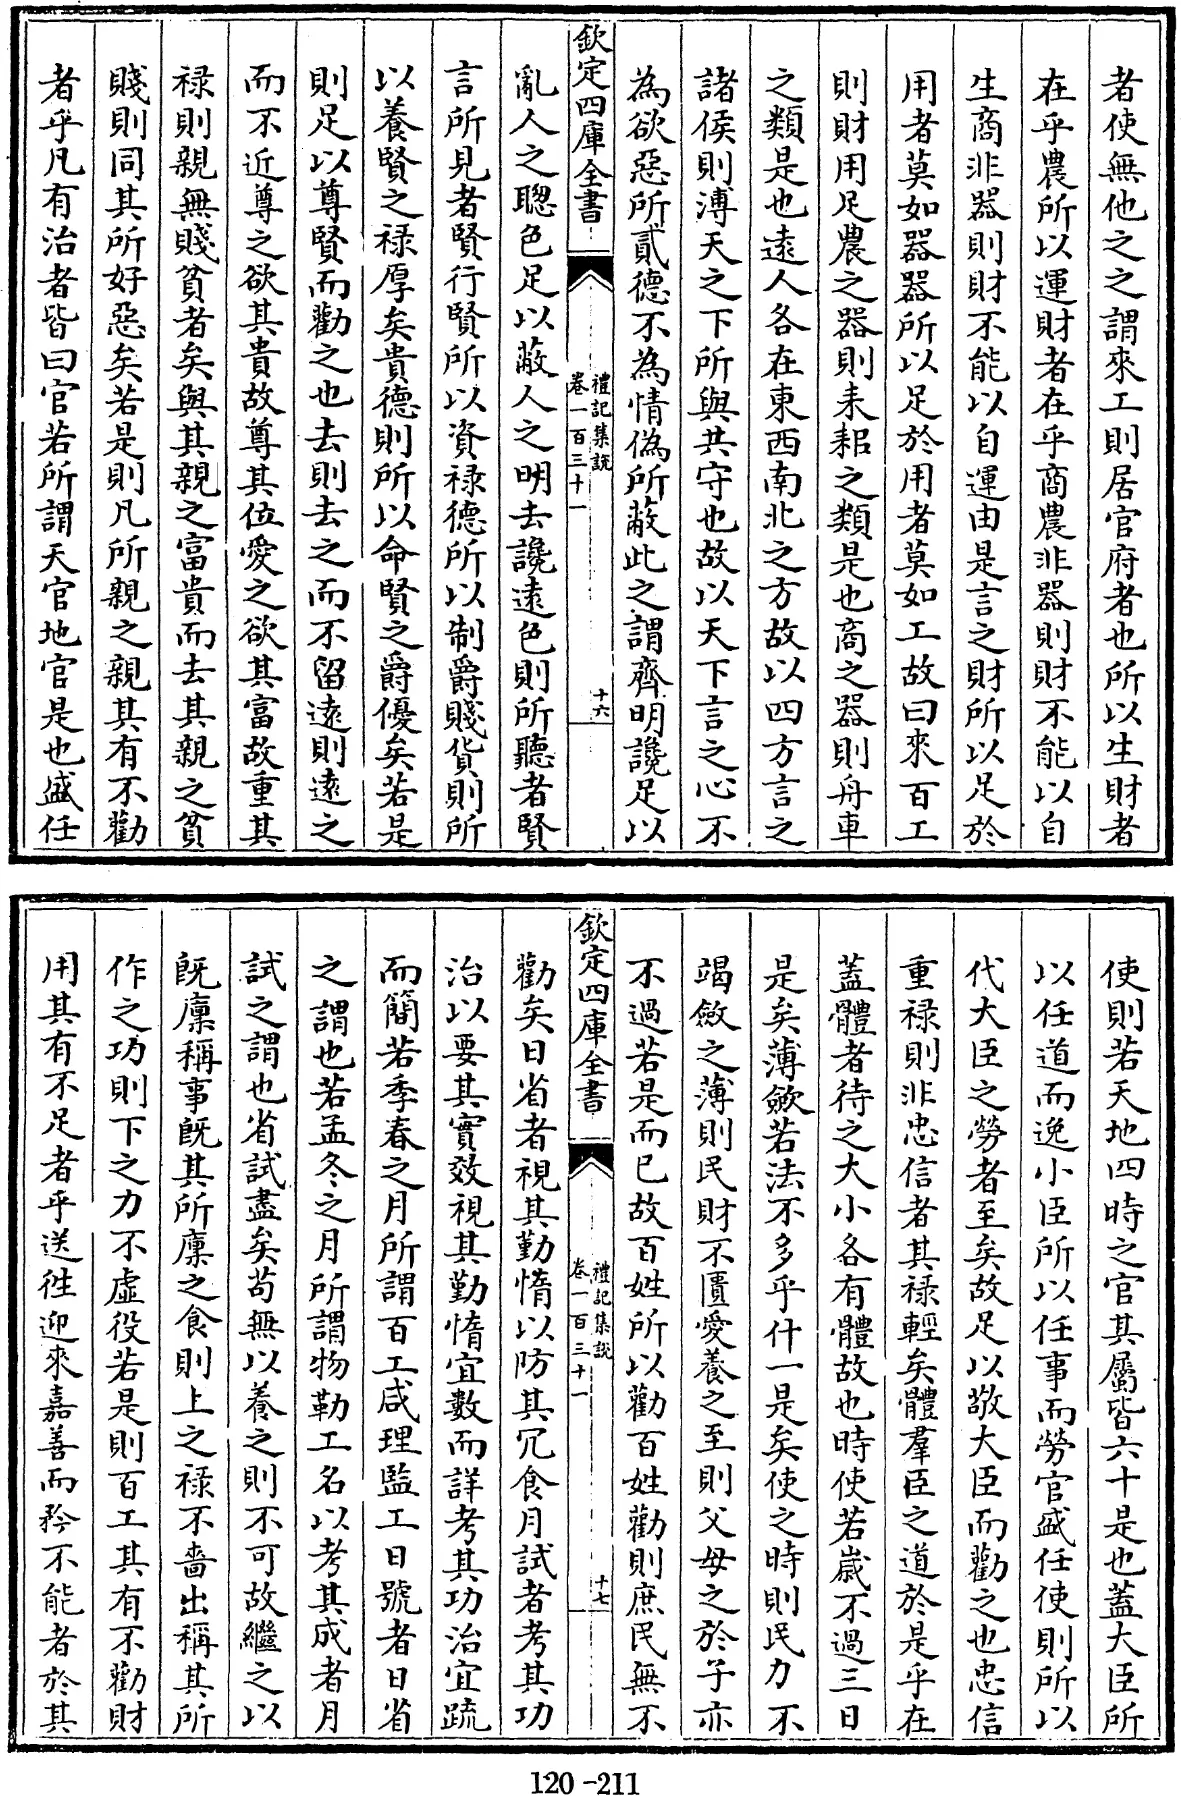 者使無他之之謂來工則居官府者也所以生財者
在乎農所以運財者在乎商農非器則財不能以自
生商非器則財不能以自運由是言之財所以足於
用者莫如器器所以足於用者莫如工故曰來百工
則財用足農之器則耒耜之類是也商之器則舟車
之類是也遠人各在東西南北之方故以四方言之
諸侯則溥天之下所與共守也故以天下言之心不
為欲惡所貳德不為情偽所蔽此之謂齊明讒足以
欽定四庫全書
禮記集說
卷一百三十一
十六
亂人之聰色足以蔽人之明去讒遠色則所聽者賢
言所見者賢行賢所以資祿德所以制爵賤貨則所
以養賢之祿厚矣貴德則所以命賢之爵優矣若是
則足以尊賢而勸之也去則去之而不留遠則遠之
而不近尊之欲其貴故尊其位愛之欲其富故重其
祿則親無賤貧者矣與其親之富貴而去其親之貧
賤則同其所好惡矣若是則凡所親之親其有不勸
者乎凡有治者皆曰官若所謂天官地官是也盛任
使則若天地四時之官其屬皆六十是也蓋大臣所
以任道而逸小臣所以任事而勞官盛任使則所以
代大臣之勞者至矣故足以敬大臣而勸之也忠信
重祿則非忠信者其祿輕矣體羣臣之道於是乎在
蓋體者待之大小各有體故也時使若歲不過三日
是矣薄斂若法不多乎什一是矣使之時則民力不
竭斂之薄則民財不匱愛養之至則父母之於子亦
不過若是而已故百姓所以勸百姓勸則庶民無不
欽定四庫全書
禮記集說
卷一百三十一
十七
勸矣日省者視其勤惰以防其冗食月試者考其功
治以要其實效視其勤惰宜數而詳考其功治宜疏
而簡若季春之月所謂百工咸理監工日號者日省
之謂也若孟冬之月所謂物勒工名以考其成者月
試之謂也省試盡矣苟無以養之則不可故繼之以
旣廩稱事旣其所廩之食則上之祿不嗇出稱其所
作之功則下之力不虛役若是則百工其有不勸財
用其有不足者乎送徃迎來嘉善而矜不能者於其
120-211